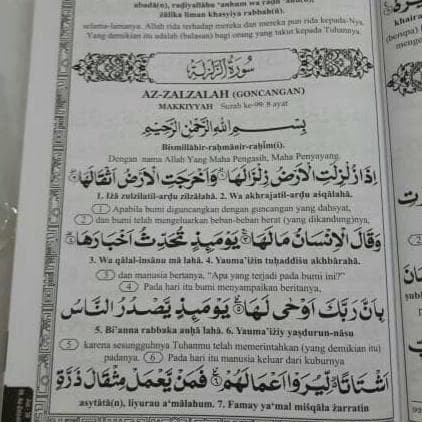 abadā(n), raḍiyallāhu ‘anhum wa raḍū ‘anh(u),
żālika liman khasyiya rabbah(ū).
selama-lamanya. Allah rida terhadap mereka dan mereka pun rida kepada-Nya.
Yang demikian itu adalah (balasan) bagi orang yang takut kepada Tuhannya.
سُورَةُ الزَّلْزَلَةِ
AZ-ZALZALAH (GONCANGAN)
MAKKIYYAH Surah ke-99: 8 ayat
بِسْمِ اللهِ الرَّحْمٰنِ الرَّحِيْمِ
Bismillāhir-raḥmānir-raḥīm(i).
Dengan nama Allah Yang Maha Pengasih, Maha Penyayang.
اِذَا زُلْزِلَتِ الْاَرْضُ زِلْزَالَهَا ۙ١ وَاَخْرَجَتِ الْاَرْضُ اَثْقَالَهَا ۙ٢
1. Iżā zulzilatil-arḍu zilzālahā. 2. Wa akhrajatil-arḍu aṡqālahā.
1 Apabila bumi diguncangkan dengan guncangan yang dahsyat,
2 dan bumi telah mengeluarkan beban-beban berat (yang dikandung)nya,
وَقَالَ الْاِنْسَانُ مَا لَهَا ۚ٣ يَوْمَىِٕذٍ تُحَدِّثُ اَخْبَارَهَا ۙ٤
3. Wa qālal-insānu mā lahā. 4. Yauma'iżin tuḥaddiṡu akhbārahā.
3 dan manusia bertanya, “Apa yang terjadi pada bumi ini?”
4 Pada hari itu bumi menyampaikan beritanya,
بِاَنَّ رَبَّكَ اَوْحٰى لَهَا ۗ٥ يَوْمَىِٕذٍ يَّصْدُرُ النَّاسُ
5. Bi'anna rabbaka auḥā lahā. 6. Yauma'iżiy yaṣdurun-nāsu
5 karena sesungguhnya Tuhanmu telah memerintahkan (yang demikian itu)
padanya. 6 Pada hari itu manusia keluar dari kuburnya
اَشْتَاتًا ەۙ لِّيُرَوْا اَعْمَالَهُمْ ۗ٦ فَمَنْ يَّعْمَلْ مِثْقَالَ ذَرَّةٍ
asytātā(n), liyurau a‘mālahum. 7. Famay ya‘mal miṡqāla żarratin